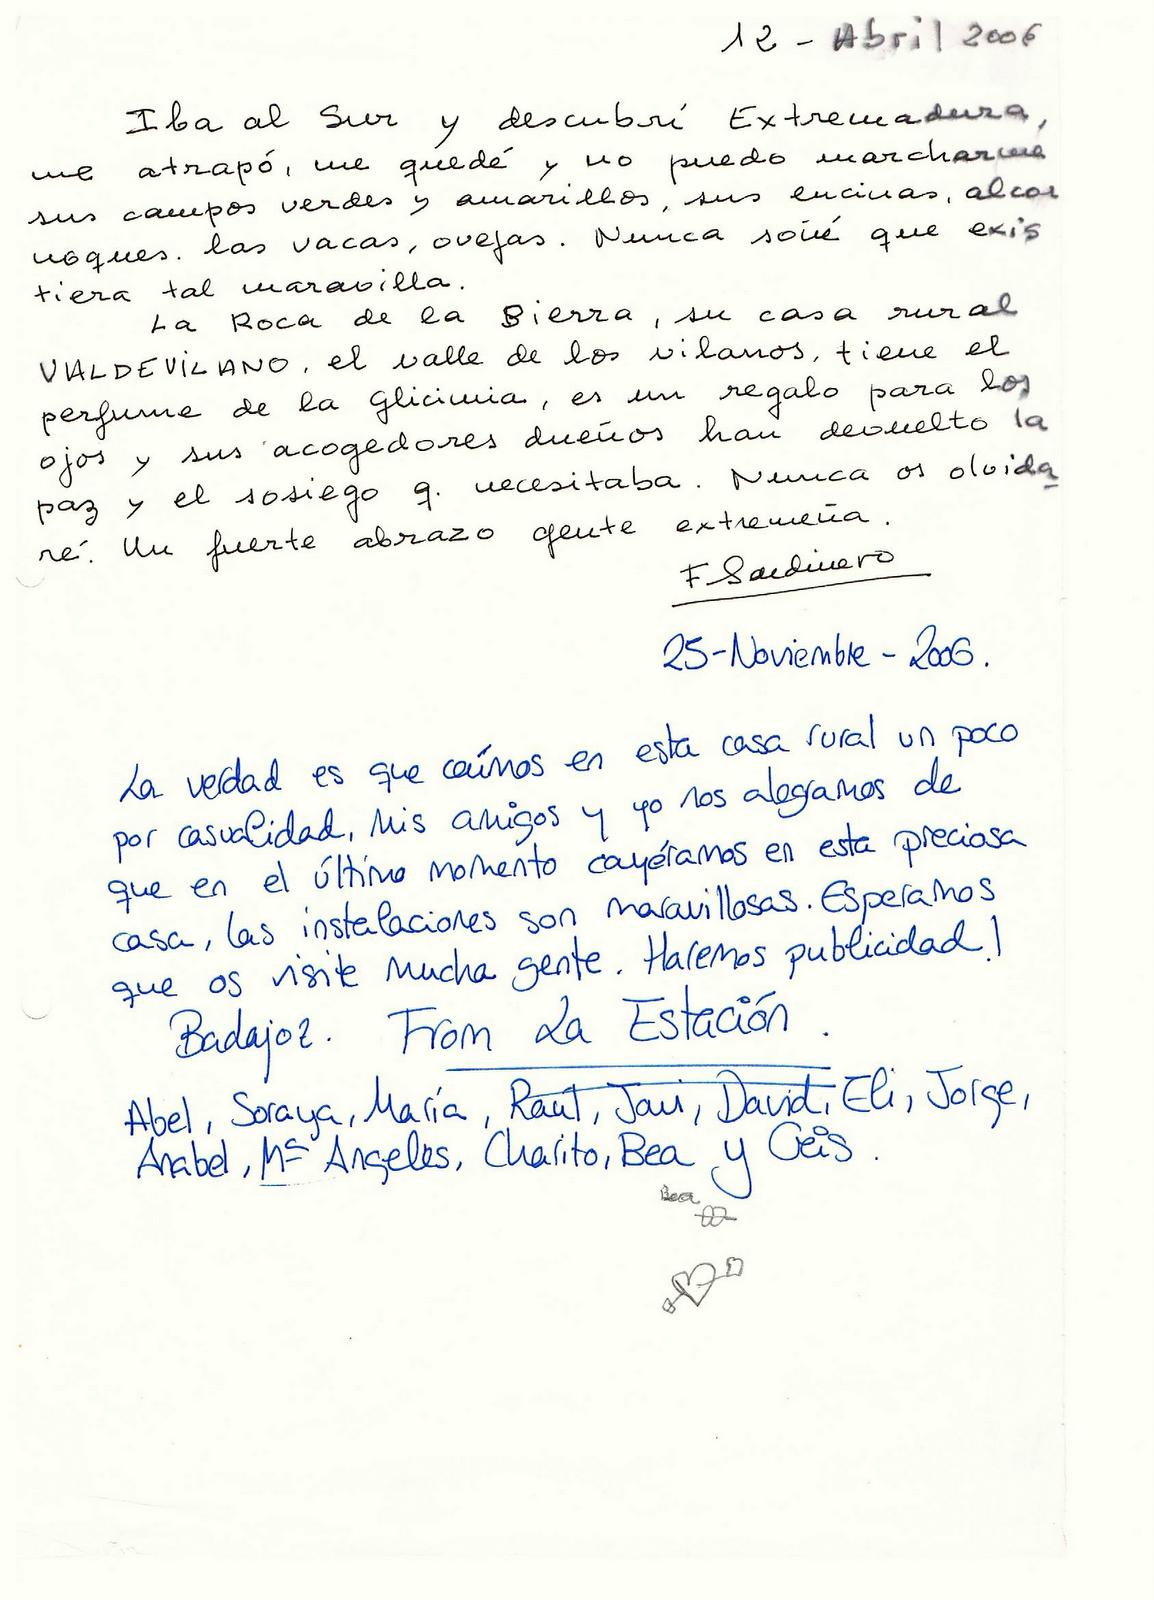 12 - Abril 2006
Iba al Sur y descubrí Extremadura,
me atrapó, me quedé y no puedo marcharme
sus campos verdes y amarillos, sus encinas, alcor
noques. las vacas, ovejas. Nunca soñé que exis
tiera tal maravilla.
La Roca de la Sierra, su casa rural
VALDEVILANO, el valle de los vilanos, tiene el
perfume de la glicinia, es un regalo para los
ojos y sus acogedores dueños han devuelto la
paz y el sosiego q. necesitaba. Nunca os olvida
ré. Un fuerte abrazo gente extremeña.
F Sardinero
25-Noviembre-2006.
La verdad es que caímos en esta casa rural un poco
por casualidad, Mis amigos y yo nos alegramos de
que en el último momento cayéramos en esta preciosa
casa, las instalaciones son maravillosas. Esperamos
que os visite mucha gente. Haremos publicidad!
Badajoz. From La Estación.
Abel, Soraya, María, Raúl, Javi, David, Eli, Jorge,
Anabel, Mª Angeles, Charito, Bea y Geis.
Bea